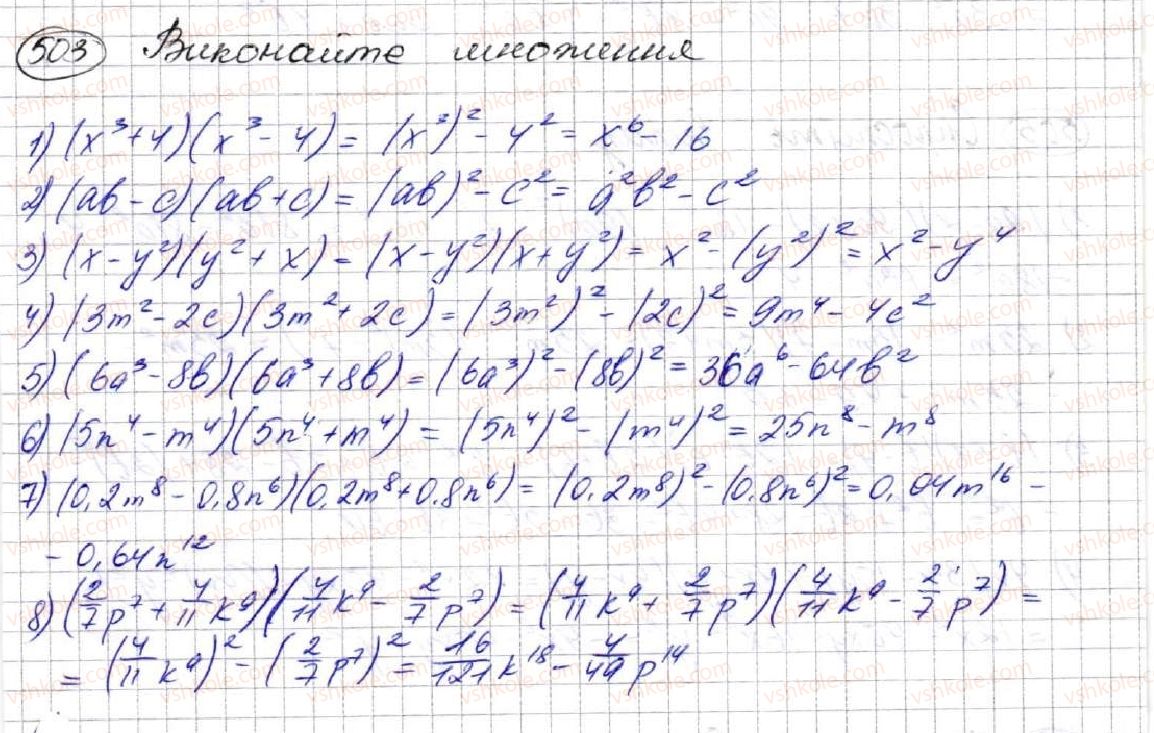 503 Виконайте множення
1) (x³+4)(x³-4)= (x³)²-4²= x⁶-16
2) (ab-c)(ab+c)=(ab)²-c²= a²b²-c²
3) (x-y²)(y²+x)=(x-y²)(x+y²)= x²-(y²)²=x²-y⁴
4) (3m²-2c)(3m²+2c)=(3m²)²-(2c)²=9m⁴-4c²
5) (6a³-8b)(6a³+8b)=(6a³)²-(8b)²=36a⁶-64b²
6) (5n⁴-m⁴)(5n⁴+m⁴)=(5n⁴)²-(m⁴)²=25n⁸-m⁸
7) (0,2m⁸-0,8n⁶)(0,2m⁸+0,8n⁶)=(0,2m⁸)²-(0,8n⁶)²=0,04m¹⁶-
-0,64n¹²
8) (2/7p⁷+4/11k⁹)(4/11k⁹-2/7p⁷)=(4/11k⁹+2/7p⁷)(4/11k⁹-2/7p⁷)=
=(4/11k⁹)²-(2/7p⁷)²=16/121k¹⁸-4/49p¹⁴